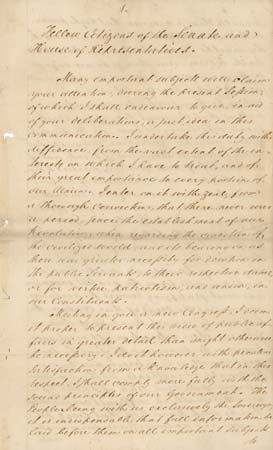 1.
Fellow Citizens of the Senate and
House of Representatives.
Many important subjects will claim
your attention, during the present Session,
of which I shall endeavour to give, in aid
of your deliberations, a just idea in this
communication. I undertake this duty with
diffidence, from the vast extent of the in
terests on which I have to treat, and of
their great importance to every portion of
our Union. I enter on it with zeal, from
a thorough conviction, that there never was
a period, since the establishment of our
Revolution, when, regarding the condition of
the civilized world, and its bearing on us
there was greater necessity for devotion in
the public Servants, to their respective duties,
or for virtue, patriotism, and union, in
our Constituents.
Meeting in you a new Congress, I deem
it proper to present this view of public af
fairs in greater detail than might otherwise
be necessary. I do it however with peculiar
satisfaction, from a knowledge that in this
respect, I shall comply more fully with the
sound principles of our Government. The
People being with us exclusively the Sovereign,
it is indispensable, that full information be
laid before them on all important subjects